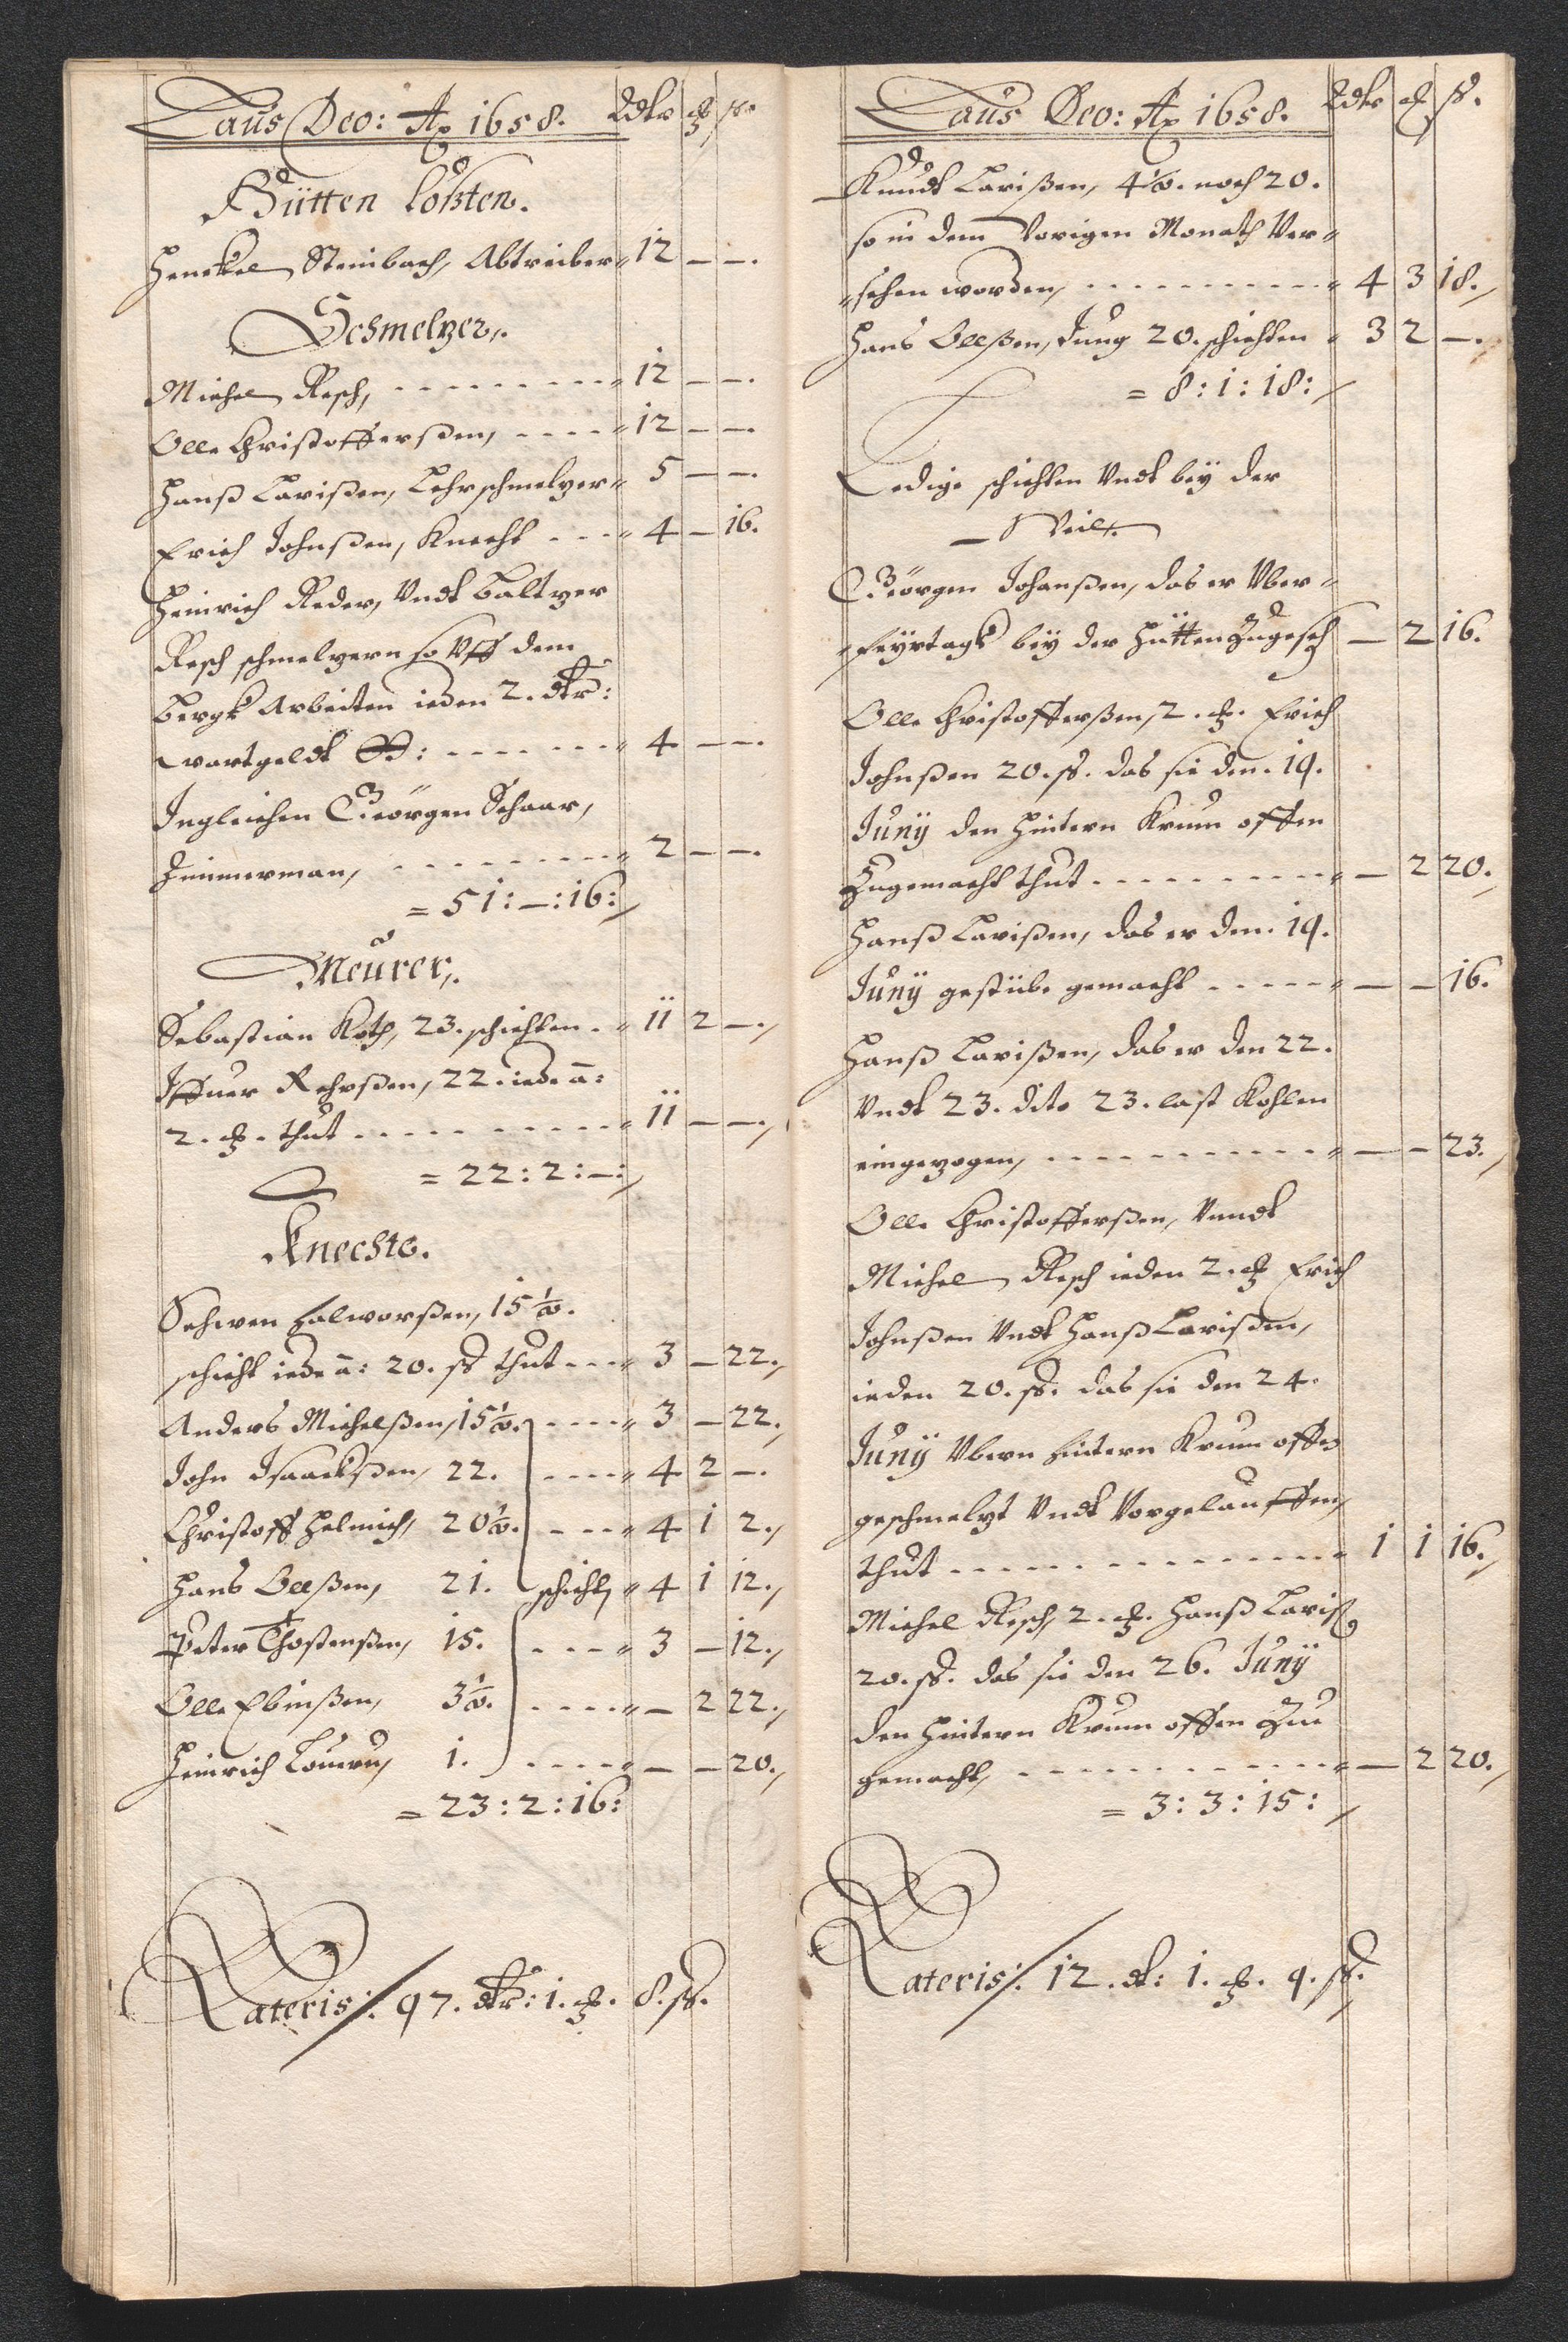 Laus Deo: Ao 1658. Rdlr ȹ ß.
Hütten Cösten.
Henckel Steinbach, Abtreiber 12 – –.
Schmeltzer.
Michel Resch, 12 – –.
Olle Christofferßen, 12 – –.
Hanß Larißen, Lehrschmeltzer 5 – –.
Erich Johnßen, Knecht 4 – 16.
Heinrich Reder, Undt Baltzer
Resch schmeltzern so Uff dem
Bergk Arbeiten ieden 2. dlr:
wartgeldt 4 – –.
Ingleichen Geörgen Schaar,
Zimmerman, 2 – –.
= 51: – : 16:
Meurer.
Sebastian Koth, 23. schichten 11 2 –.
Rehrßen, 22. iede â:
2. thut 11 – –.
= 22: 2: –:
Knechte.
Schwen Halworßen, 15 1/2.
schicht iede â: 20. ß thut 3 – 22.
Anders Michelßen, 15 1/2. 3 – 22.
John Isaackßen, 22. 4 2 –.
Christoff Helmich, 20 1/2. 4 1 2.
Hans Olßen, 21. schicht 4 1 12.
Peter Thostenßen, 15. 3 – 12.
Olle Ebinßen, 3 1/2. – 2 22.
Heinrich 1. – – 20.
= 23: 2: 16:
Lateris: 97. dlr: 1. 8. ß.
Laus Deo: Ao 1658. Rdlr ß.
Knudt Larißen, 4 1/2. noch 20.
so in dem Vorigen Monath Ver-
sehen worden, 4 3 18.
Hans Olßen, Jung 20. schichten 3 2 –.
= 8: 1: 18:
Ledige schichten Undt bey der
Weil.
Geörgen Johanßen, das er Uber
feyrtags bey der Hütten Zugeseh – 2 16.
Olle Christofferßen, 2. Erich
Johnßen 20. ß. das sie den. 19.
Juny den Hintern Krum offen
Zugemacht thut – 2 20.
Hanß Larißen, das er den. 19.
Juny gestübe gemacht – – 16.
Hanß Larißen, das er den 22.
Undt 23. dito 23. last Kohlen
eingezogen, – – 23.
Olle Christofferßen, Unndt
Michel Resch ieden 2. Erich
Johnßen Undt Hanß Larißen,
ieden 20. ß. das sie den 24.
Juny Ubern hintern Krum offen
geschmeltzt Undt Vorgelauffen,
thut 1 1 16.
Michel Resch, 2. Hanß Lariß
20. ß. das sie den 26. Juny
den Hintern Krum offen Zu
gemacht, – 2 20.
= 3: 3: 15:
Lateris: 12. dl: 1. 9. ß.